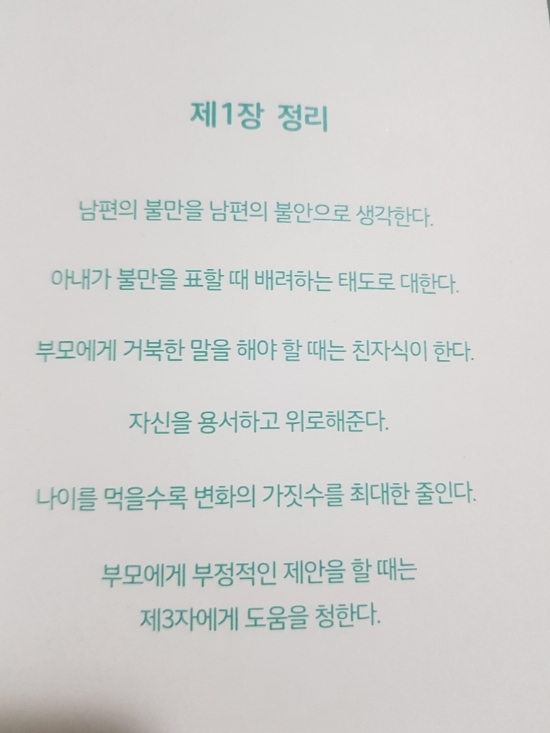 제1장 정리
남편의 불만을 남편의 불안으로 생각한다.
아내가 불만을 표할 때 배려하는 태도로 대한다.
부모에게 거북한 말을 해야 할 때는 친자식이 한다.
자신을 용서하고 위로해준다.
나이를 먹을수록 변화의 가짓수를 최대한 줄인다.
부모에게 부정적인 제안을 할 때는
제3자에게 도움을 청한다.